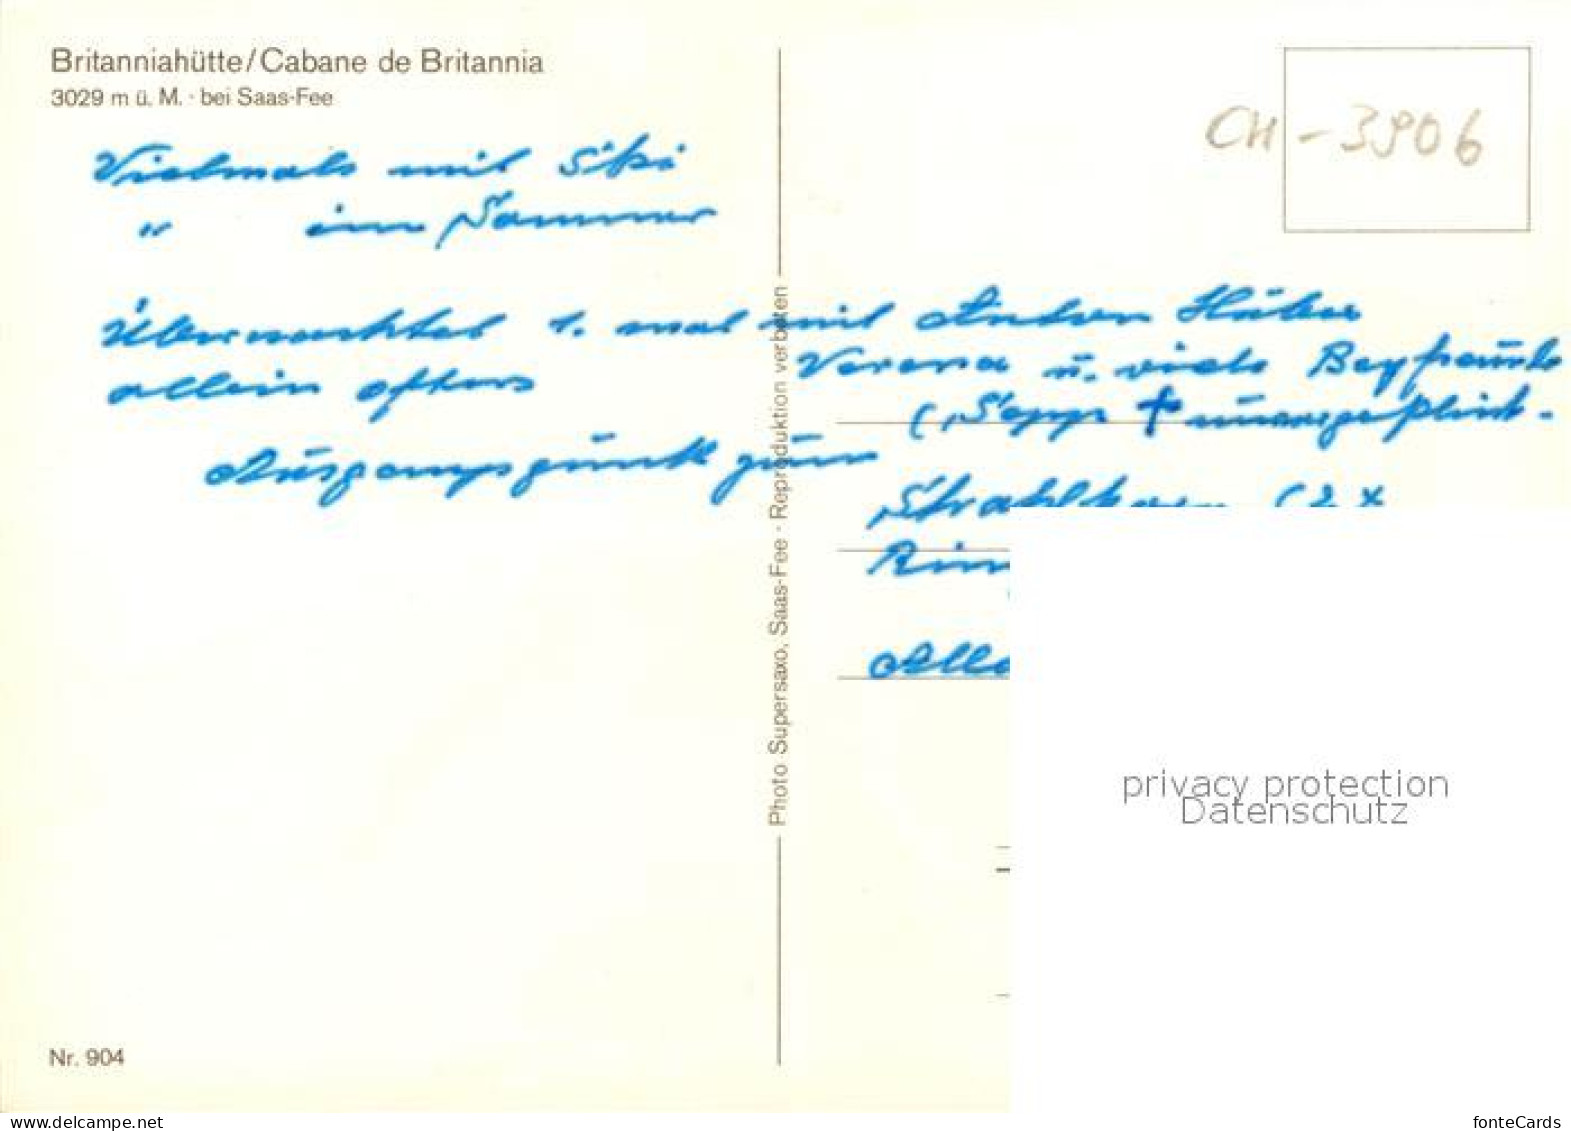 Britanniahütte/Cabane de Britannia
3029 m ü. M. · bei Saas-Fee
CH-3906
Vielmals mit Ski
" im Sommer
Übernachtet 1. mal mit Anton Huber
Verena u. viele Bergfreunde
allein öfters
(Sepp †
Ausgangspunkt zum
Strahlhorn (2x
Rim
Alla
Photo Supersaxo, Saas-Fee · Reproduktion verboten
privacy protection
Datenschutz
Nr. 904
delcampe.net
fonteCards